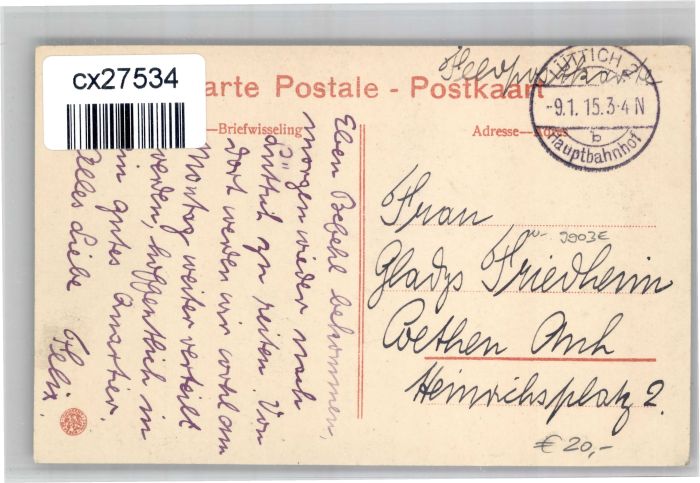 cx27534
arte Postale - Postkaart
Feldpostkarte
LÜTTICH 2
-9.1.15.3-4 N
b
Hauptbahnhof
—Briefwisseling
Adresse—
Eben Befehl bekommen,
morgen wieder nach
zu reiten. Von
dort werden wir wohl am
Montag weiter verteilt
werden, hoffentlich in
ein gutes Quartier.
Alles Liebe Felix.
Frau
3903E
Gladys Friedheim
Coethen Anh
Heinrichsplatz 2.
€ 20,-